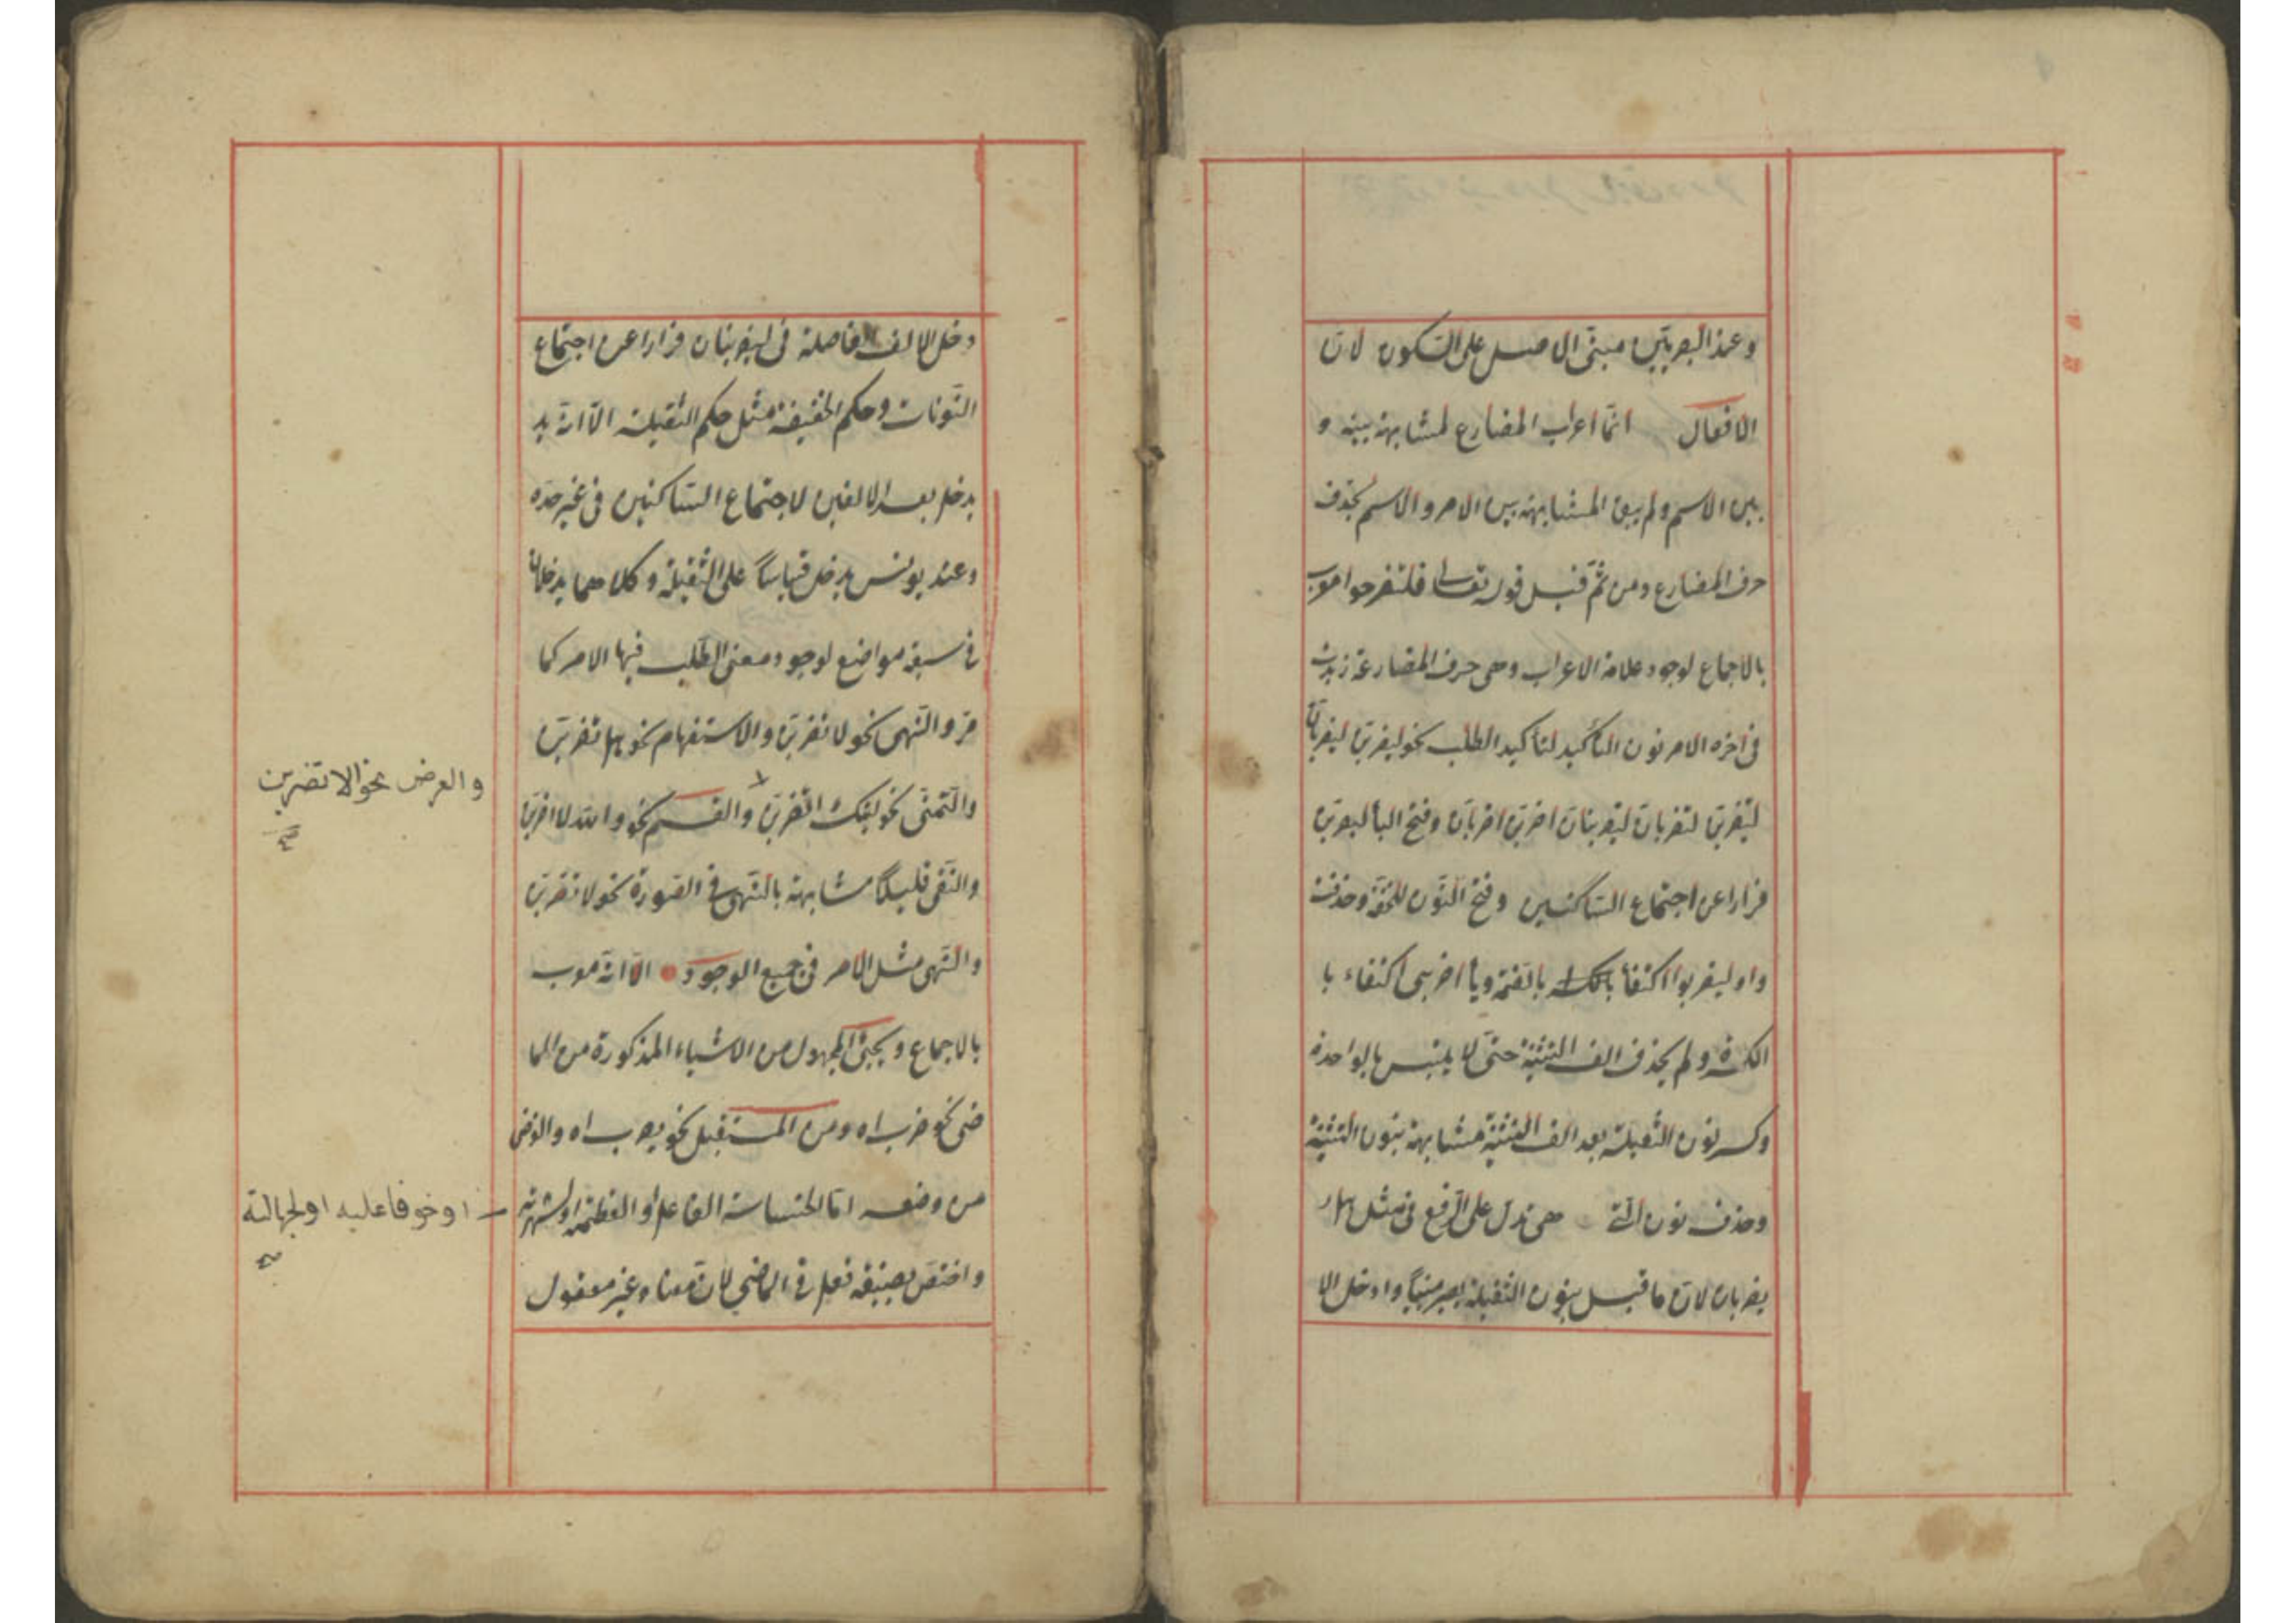 وعند البصريّين مبنىّ الاصل على السّكون لانّ
الافعال انّما اعراب المضارع لمشابهة بينه و
بين الاسم ولم يبق المشابهة بين الامر والاسم بحذف
حرف المضارع ومن ثمّ قيل قوله تعالى فلتفرحوا معرب
بالاجماع لوجود علامة الاعراب وهى حرف المضارعة زيدت
فى اخره الامر نون التأكيد لتأكيد الطلب نحو ليضربنّ ليضربانّ
لتضربنّ لتضربانّ ليضربنانّ اضربنّ اضربانّ وفتح البأ ليضربنّ
فرارا عن اجتماع السّاكنين وفتح النّون للخفّة وحذفت
واو ليضربوا اكتفأ بالضمّة ويأ اضربى اكتفاء با
الكسرة ولم يحذف الف التثنية حتىّ لا يلتبس بالواحدة
وكسر نون الثقيلة بعد الف التثنية مشابهة بنون التثنية
وحذف نون الّتى هى تدلّ على الرّفع فى مثل هل
يضربان لانّ ما قبل بنون الثقيلة يصير مبنيّاً وادخل الا
دخل الالف الفاصلة فى ليضربنان فرارا عن اجتماع
النّونات وحكم الخفيفة مثل حكم الثقيلة الّا انّه يد
يدخل بعد الالفين لاجتماع السّاكنين فى غير حدّه
وعند يونس يدخل قياساً على الثقيلة وكلاهما يدخلان
فى سبعة مواضع لوجود معنى الطّلب فيها الامر كما
مرّ والنّهى نحو لا تضربنّ والاستفهام نحو هل تضربنّ
والتّمنّى نحو ليتك تضربنّ والقسم نحو والله لاضربنّ
والعرض نحو الا تضربن
صح
والنّفى قليلاً مشابهة بالنّهى فى الصّورة نحو لا تضربنّ
والنّهى مثل الامر فى جميع الوجود الّا انّه معرب
بالاجماع ويجئ المجهول من الاشياء المذكورة من الما
ضى نحو ضرب اه ومن المستقبل نحو يضرب اه والغرض
من وضعه امّا لخساسة الفاعل او لعظمته او لشهرته
او خوفا عليه او لجهالته
صح
واختصّ بصيغة فعل فى الماضى لانّ معناه غير معقول